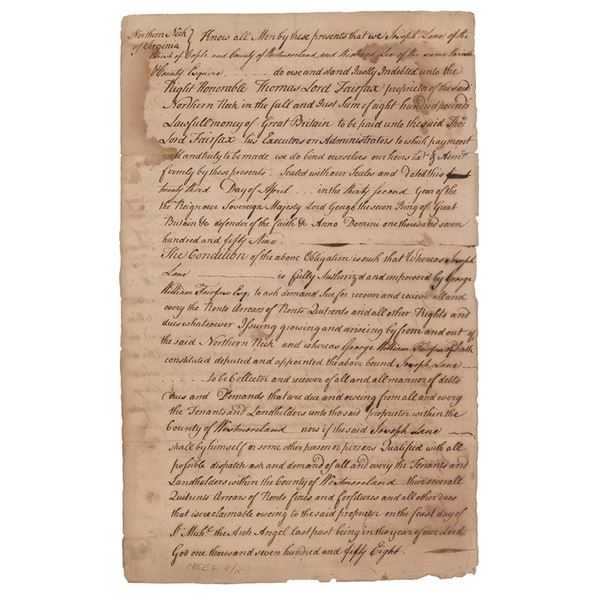 Northern Neck } Know all Men by these presents that we Joseph Lane of the
of Virginia
Parish of Cople and County of Westmoreland and Richard Lee of the same Parish
& County Esquire do owe and stand Justly Indebted unto the
Right Honorable Thomas Lord Fairfax proprietor of the said
Northern Neck in the full and Just Sum of eight hundred pounds
Lawfull money of Great Britain to be paid unto the said Thos.
Lord Fairfax his Executors or Administrators to which payment
well and truly to be made we do bind ourselves our heirs Exrs. & Admrs.
firmly by these presents. Sealed with our Seales and Dated this
twenty third Day of April in the thirty second Year of the
the Reign our Sovereign Majesty Lord George the seven King of Great
Britain &c defender of the faith &c Anno Domini one thousand seven
hundred and fifty Nine.
The Condition of the above Obligation is such that Whereas Joseph
Lane is fully Authorized and empowered by George
William Fairfax Esq. to ask demand Sue for recover and recieve all and
every the Rents Arrears of Rents Quitrents and all other Rights and
dues whatsoever Issuing growing and arising by from and out of
the said Northern Neck and whereas George William Fairfax Esq. hath
constituted deputed and appointed the above bound Joseph Lane
to be Collector and receiver of all and all manner of debts
dues and Demands that are due and oweing from all and every
the Tenants and Landholders unto the said proprietor within the
County of Westmoreland now if the said Joseph Lane
shall by himself or some other person or persons Qualified with all
possible dispatch ask and demand of all and every the Tenants and
Landholders within the County of Westmoreland their severall
Quitrents Arrears of Rents fines and forfeitures and all other dues
that is reclaimable oweing to the said proprietor on the feast day of
St. Michl. the Arch Angel last past being in the year of our Lord
God one thousand seven hundred and fifty Eight.